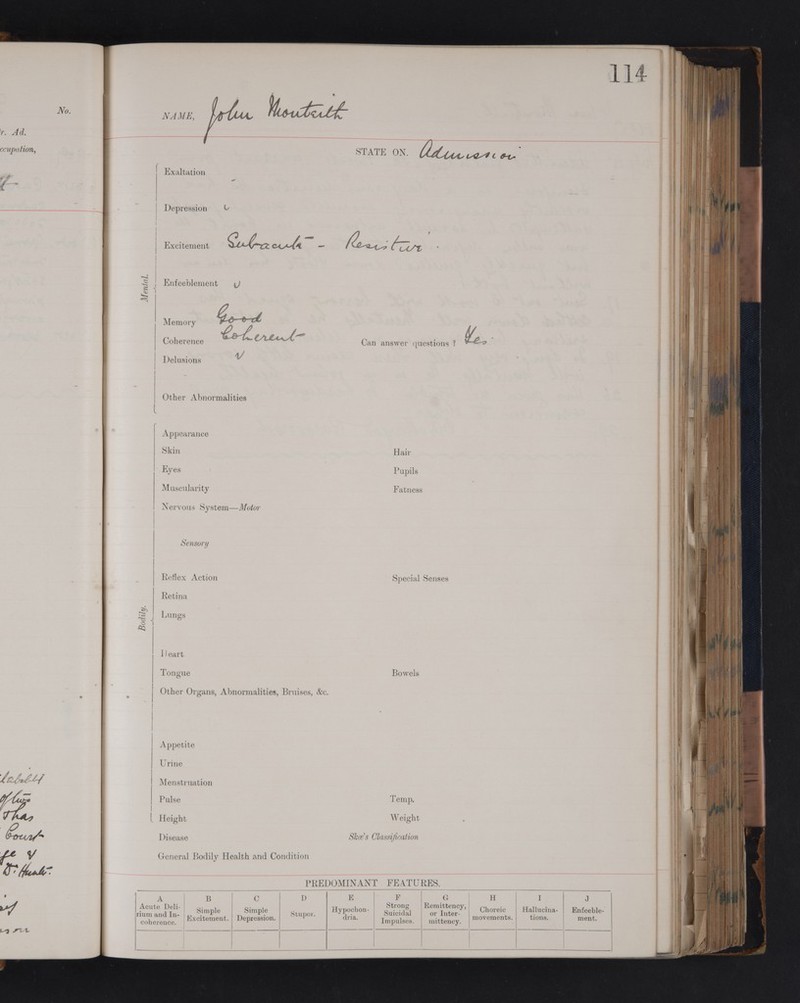 114
No.
NAME, John Monteith
r. Ad.
ccupation,
STATE ON Admission
Exaltation -
Depression
Excitement Subacute - Resistive.
Mental.
Enfeeblement
Memory Good
Coherence Coherent Can answer questions? Yes
Delusions
Other Abnormalities
Appearance
Skin Hair
Eyes Pupils
Muscularity Fatness
Nervous System—Motor
Sensory
Reflex Action Special Senses
Retina
Bodily.
Lungs
Heart
Tongue Bowels
Other Organs, Abnormalities, Bruises, &c.
Appetite
Urine
Menstruation
Pulse Temp.
Height Weight
Disease Skae's Classification
General Bodily Health and Condition
PREDOMINANT FEATURES.
A B C D E F G H I J
Acute Deli-rium and In-coherence. Simple Excitement. Simple Depression. Stupor. Hypochon-dria. Strong Suicidal Impulses. Remittency, or Inter-mittency. Choreic movements. Hallucina-tions. Enfeeble-ment.